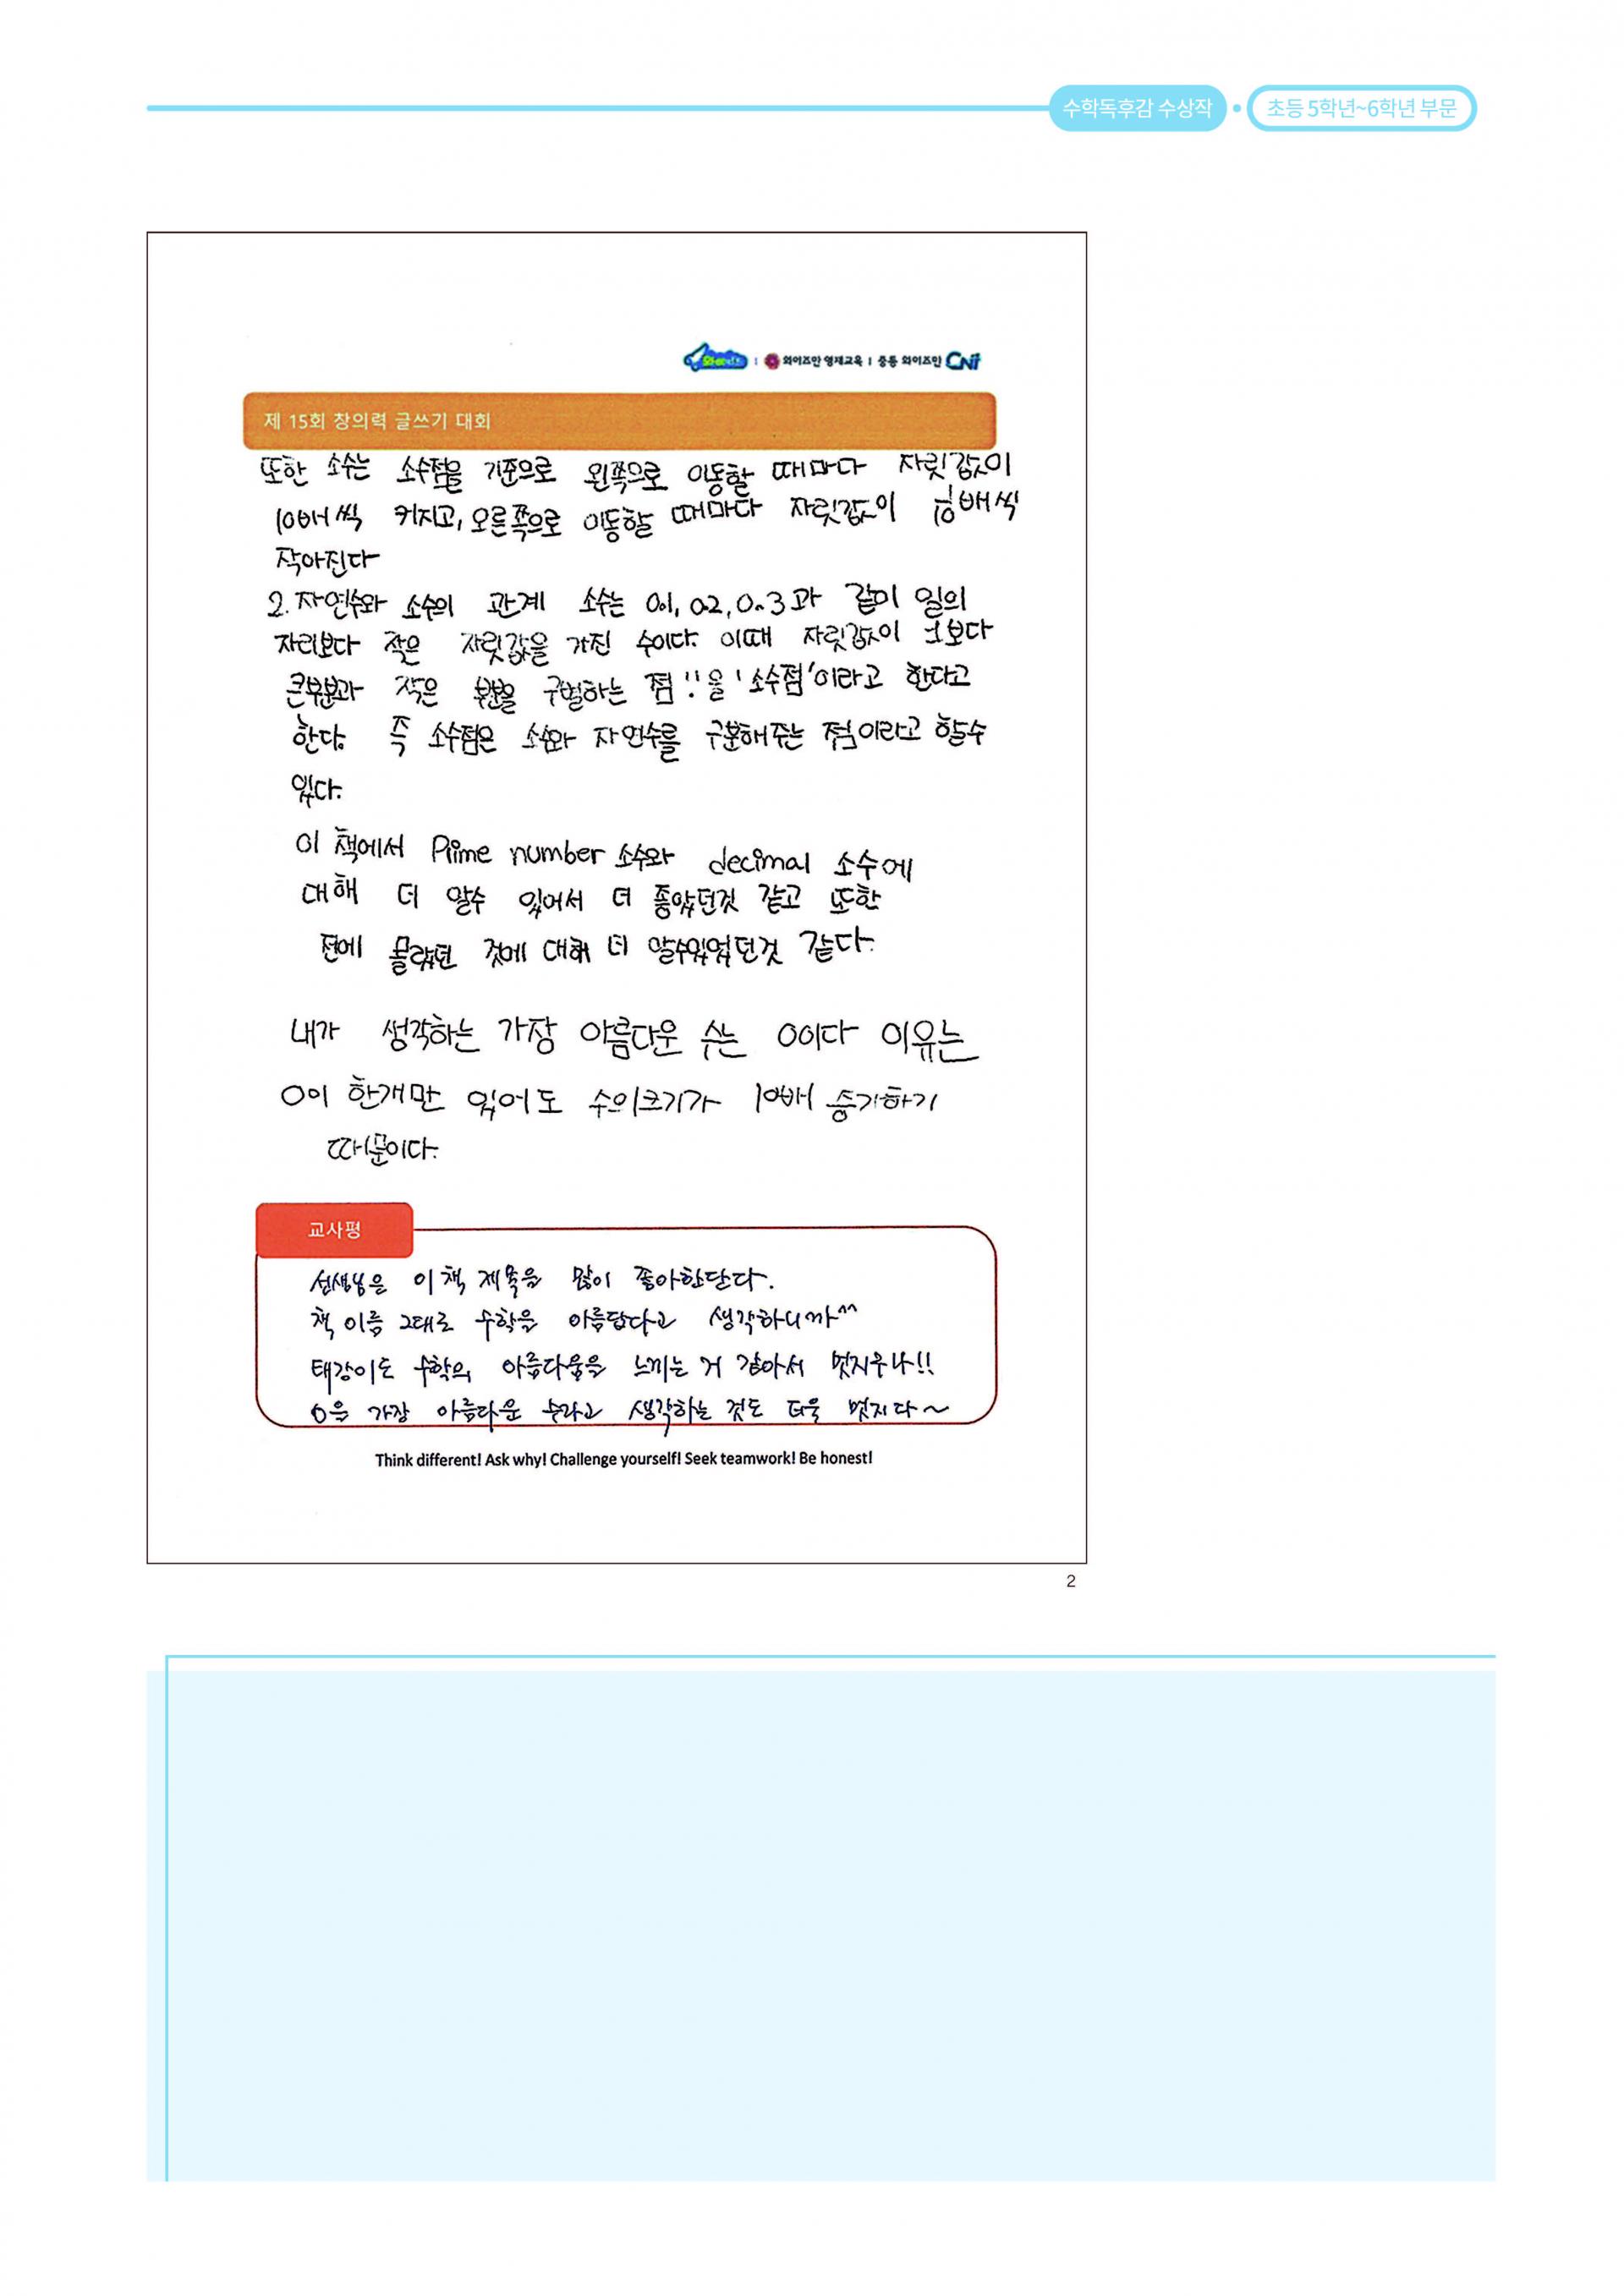 수학독후감 수상작 • 초등 5학년~6학년 부문
와이즈만 영재교육 | 중등 와이즈만 CNI
제 15회 창의력 글쓰기 대회
또한 소수는 소수점을 기준으로 왼쪽으로 이동할 때마다 자릿값이
10배씩 커지고, 오른쪽으로 이동할 때마다 자릿값이 1/10배씩
작아진다
2. 자연수와 소수의 관계 소수는 0.1, 0.2, 0.3과 같이 일의
자리보다 작은 자릿값을 가진 수이다. 이때 자릿값이 1보다
큰부분과 작은 부분을 구별하는 점 '.'을 '소수점'이라고 한다고
한다. 즉 소수점은 소수와 자연수를 구분해주는 점이라고 할수
있다.
이 책에서 Prime number 소수와 decimal 소수에
대해 더 알수 있어서 더 좋았던것 같고 또한
전에 몰랐던 것에 대해 더 알수있었던것 같다.
내가 생각하는 가장 아름다운 수는 0이다 이유는
0이 한개만 있어도 수의크기가 10배 증가하기
때문이다.
교사평
선생님은 이 책 제목을 많이 좋아한단다.
책 이름 그대로 수학을 아름답다고 생각하니까^^
태강이도 수학의 아름다움을 느끼는 거 같아서 멋지구나!!
0을 가장 아름다운 수라고 생각하는 것도 더욱 멋지다~
Think different! Ask why! Challenge yourself! Seek teamwork! Be honest!
2